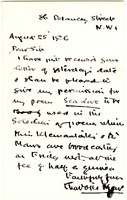 86 Delancey Street
N.W.1
August 25th 1926
Dear Sir
I have just received your
letter of yesterday's date
& shall be pleased to
give my permission for
my poem Sea Love to be
used in the
Selection of poems which
Mr. de la
Mare are broadcasting
on Friday next at the
fee of half a guinea
Faithfully yours
Charlotte Mew